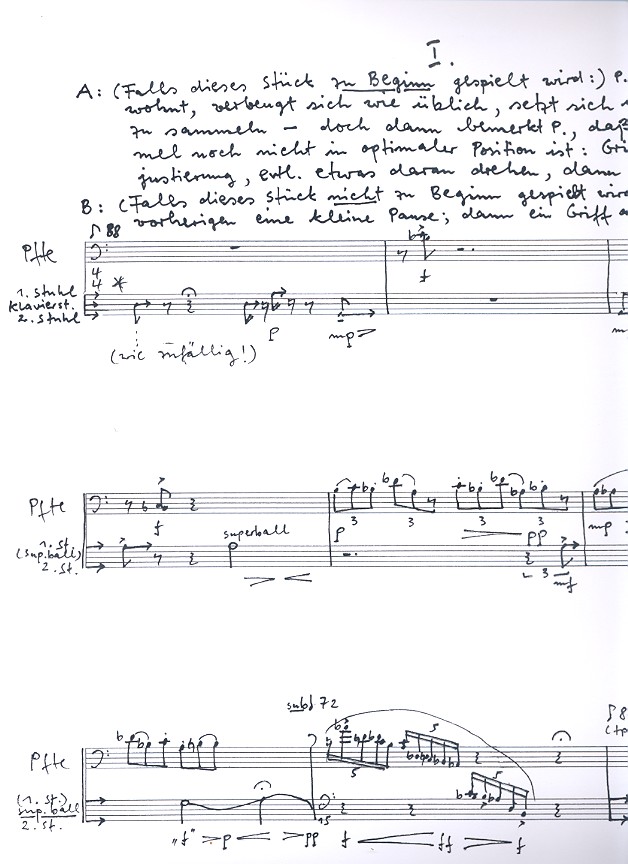 I.
A: (Falls dieses Stück zu Beginn gespielt wird:) P.
wohnt, verbeugt sich wie üblich, setzt sich
zu sammeln – doch dann bemerkt P., daß
mel noch nicht in optimaler Position ist: Gri
justierung, evtl. etwas daran drehen, dann
B: (Falls dieses Stück nicht zu Beginn gespielt wird
vorherigen eine kleine Pause; dann ein Griff a
♪ 88
Pfte
4
4 *
f
1. Stuhl
Klavierst.
2. Stuhl
p mp m
(wie zufällig!)
Pfte
f p 3 3 3 3 pp mp
1. St.
(sup.ball)
2. St.
superball
3 mf
subito 72 ♪8
Pfte
5 5
(1. St.)
sup.ball
2. St.
15 5
"f" p pp f ff f